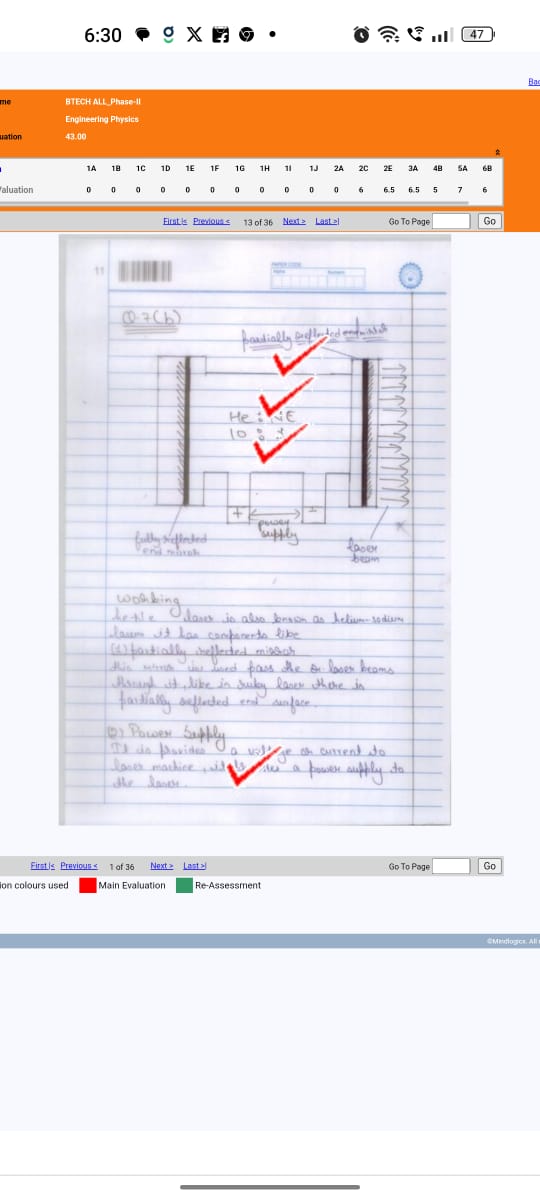 6:30
47
Bac
me
BTECH ALL_Phase-II
Engineering Physics
uation
43.00
1A 1B 1C 1D 1E 1F 1G 1H 1I 1J 2A 2C 2E 3A 4B 5A 6B
/aluation 0 0 0 0 0 0 0 0 0 0 0 6 6.5 6.5 5 7 6
First |< Previous < 13 of 36 Next > Last >| Go To Page Go
11
PAPER CODE
Q.7(b)
partially reflected end mirror
He : NE
10 :
+ -
power
supply
fully reflected
end mirror
laser
beam
Working
he-Ne laser is also known as helium-sodium
it has components like
(1) partially reflected mirror
this used pass the or laser beams
through it, like in ruby laser there is
partially reflected end surface.
(2) Power Supply
It is provides a voltage or current to
laser machine, a power supply to
the laser.
First |< Previous < 1 of 36 Next > Last >| Go To Page Go
ion colours used Main Evaluation Re-Assessment
©Mindlogicx. All